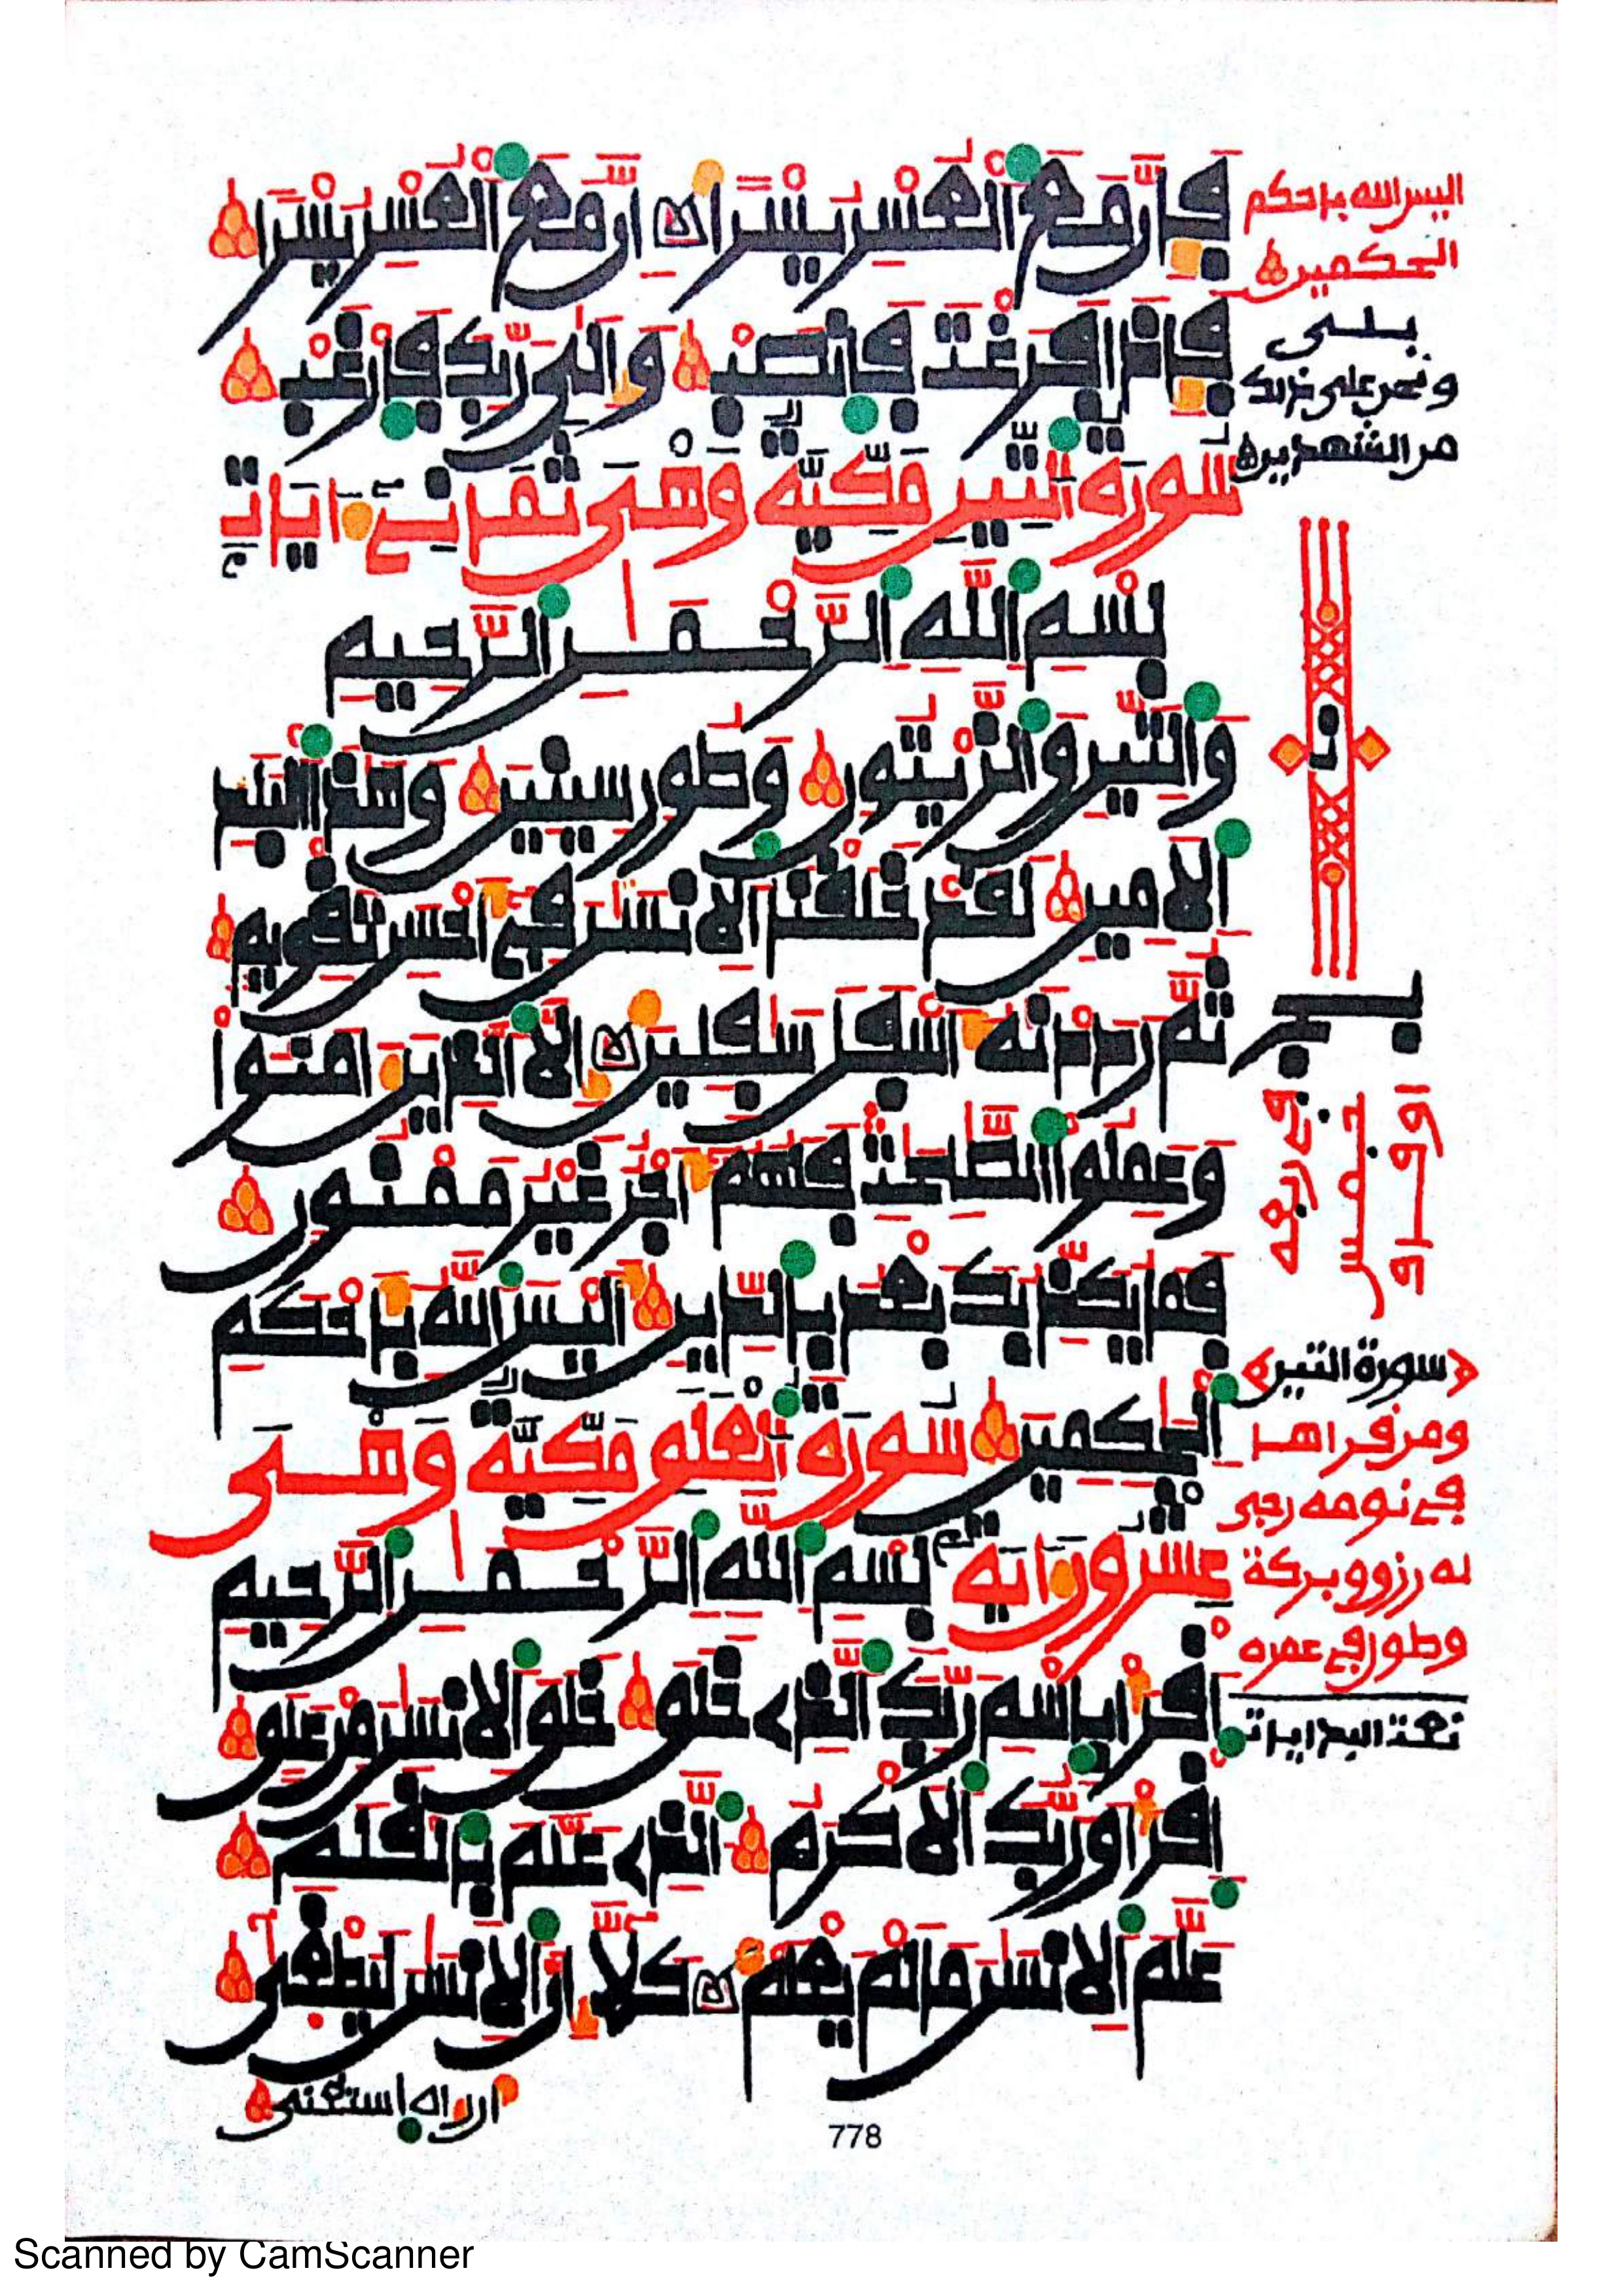 فَإِنَّ مَعَ ٱلْعُسْرِ يُسْرًا إِنَّ مَعَ ٱلْعُسْرِ يُسْرًا
فَإِذَا فَرَغْتَ فَٱنصَبْ وَإِلَىٰ رَبِّكَ فَٱرْغَب
سُورَةُ ٱلتِّينِ مَكِّيَّةٌ وَهْىَ ثَمَانِىَ ءَايَاتٍ
بِسْمِ ٱللَّهِ ٱلرَّحْمَٰنِ ٱلرَّحِيمِ
وَٱلتِّينِ وَٱلزَّيْتُونِ وَطُورِ سِينِينَ وَهَٰذَا ٱلْبَلَدِ
ٱلَامِينِ لَقَدْ خَلَقْنَا ٱلِانسَٰنَ فِىٓ أَحْسَنِ تَقْوِيمٍ
ثُمَّ رَدَدْنَٰهُ أَسْفَلَ سَٰفِلِينَ إِلَّا ٱلَّذِينَ ءَامَنُوا
وَعَمِلُوا ٱلصَّٰلِحَٰتِ فَلَهُمُۥٓ أَجْرٌ غَيْرُ مَمْنُونٍ
فَمَا يُكَذِّبُكَ بَعْدُ بِٱلدِّينِ أَلَيْسَ ٱللَّهُ بِأَحْكَمِ
ٱلْحَٰكِمِينَ سُورَةُ ٱلْعَلَقِ مَكِّيَّةٌ وَهْىَ
عِشْرُونَ ءَايَةً بِسْمِ ٱللَّهِ ٱلرَّحْمَٰنِ ٱلرَّحِيمِ
ٱقْرَأْ بِٱسْمِ رَبِّكَ ٱلَّذِى خَلَقَ خَلَقَ ٱلِانسَٰنَ مِنْ عَلَقٍ
ٱقْرَأْ وَرَبُّكَ ٱلَاكْرَمُ ٱلَّذِى عَلَّمَ بِٱلْقَلَمِ
عَلَّمَ ٱلِانسَٰنَ مَا لَمْ يَعْلَمْ كَلَّآ إِنَّ ٱلِانسَٰنَ لَيَطْغَىٰٓ
أن رءاه استغنى
778
أليس الله بأحكم
الحكمين
بلى
ونحن على ذلك
من الشهدين
سورة التين
ومن قرأها
في نومه رجي
له رزق وبركة
وطول في عمره
Scanned by CamScanner